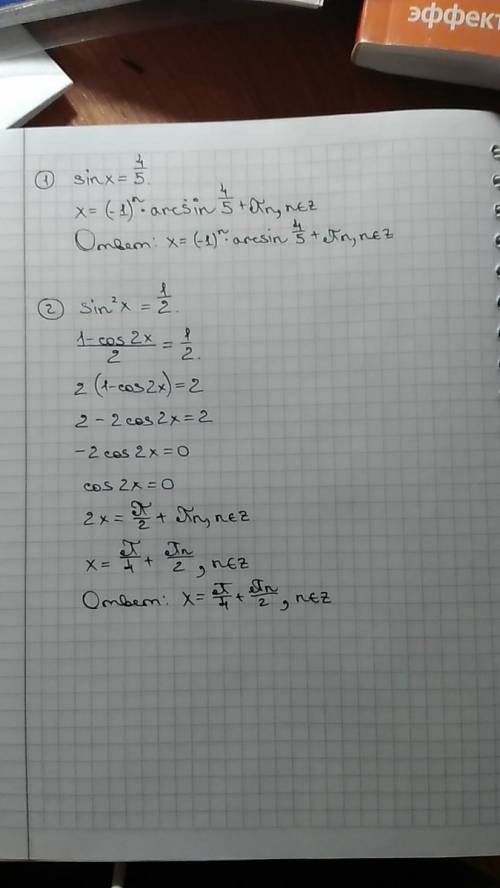 эффект
① sinx = 4/5.
x = (-1)ⁿ · arcsin 4/5 + πn, n∈z
Ответ: x = (-1)ⁿ · arcsin 4/5 + πn, n∈z
② sin²x = 1/2.
(1-cos2x)/2 = 1/2.
2(1-cos2x) = 2
2 - 2cos2x = 2
-2cos2x = 0
cos2x = 0
2x = π/2 + πn, n∈z
x = π/4 + πn/2, n∈z
Ответ: x = π/4 + πn/2, n∈z